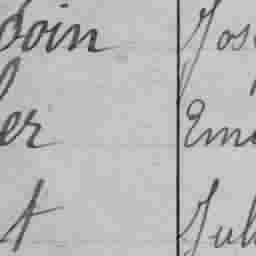 doin Jos
er Em
t Jul